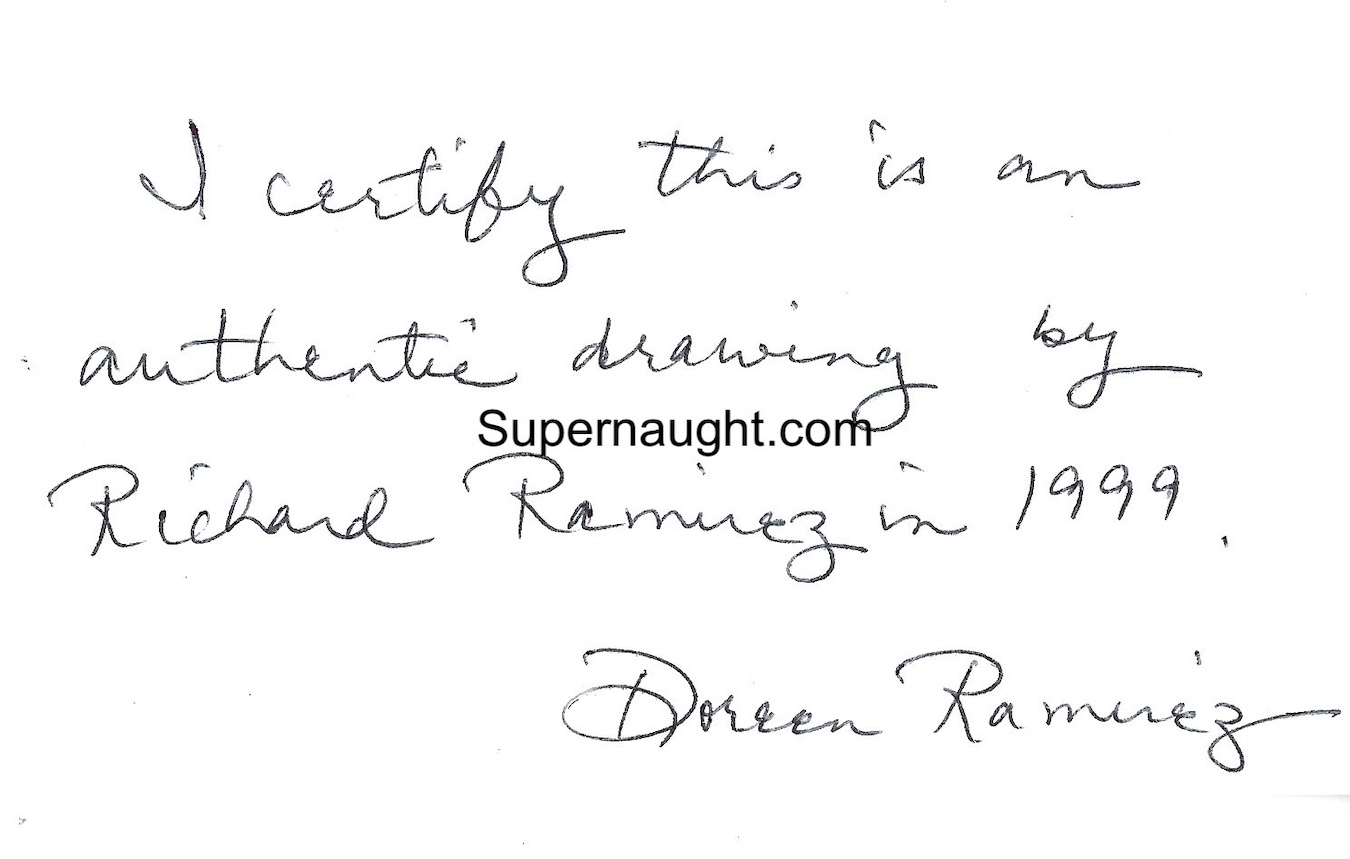 I certify this is an
authentic drawing by
Supernaught.com
Richard Ramirez in 1999.
Doreen Ramirez